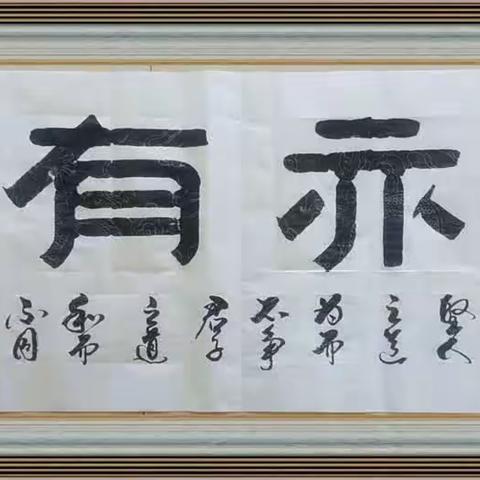 亦有
圣人之道为而不争君子之道和而不同